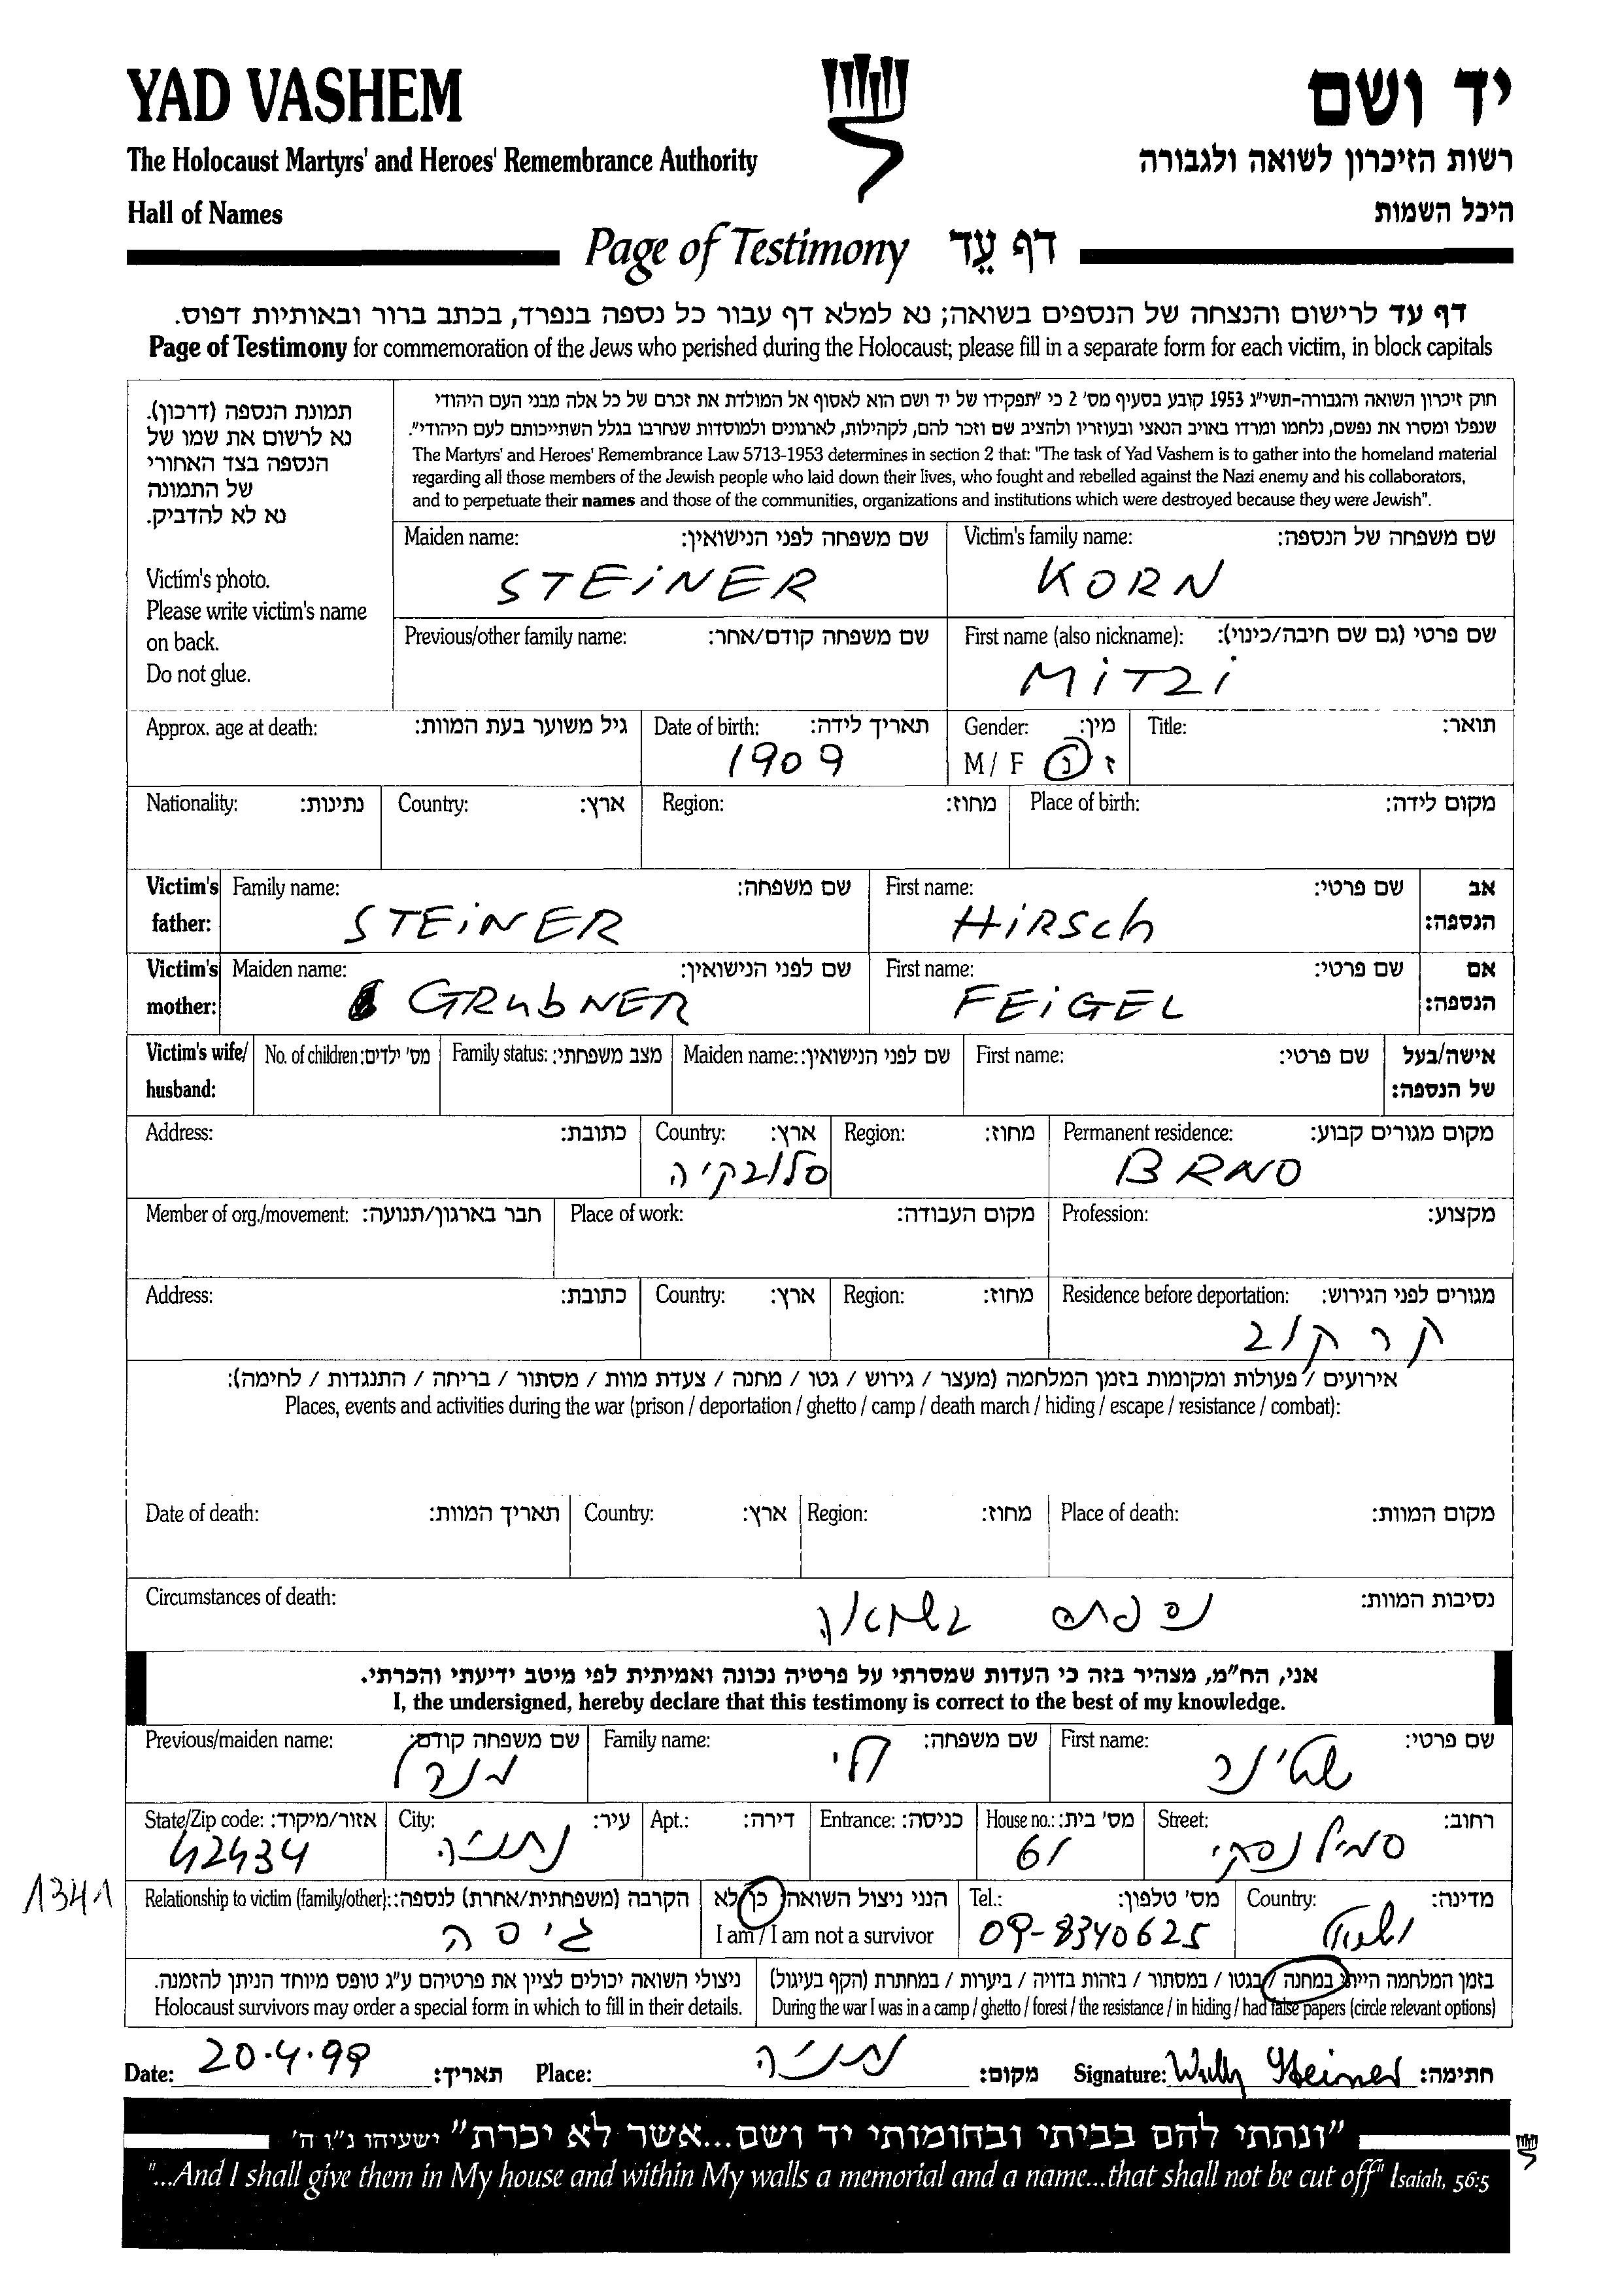 YAD VASHEM
יד ושם
The Holocaust Martyrs' and Heroes' Remembrance Authority
רשות הזיכרון לשואה ולגבורה
Hall of Names
היכל השמות
Page of Testimony דף עֵד
דף עד לרישום והנצחה של הנספים בשואה; נא למלא דף עבור כל נספה בנפרד, בכתב ברור ובאותיות דפוס.
Page of Testimony for commemoration of the Jews who perished during the Holocaust; please fill in a separate form for each victim, in block capitals
תמונת הנספה (דרכון).
נא לרשום את שמו של
הנספה בצד האחורי
של התמונה
נא לא להדביק.
Victim's photo.
Please write victim's name
on back.
Do not glue.
חוק זיכרון השואה והגבורה-תשי"ג 1953 קובע בסעיף מס' 2 כי "תפקידו של יד ושם הוא לאסוף אל המולדת את זכרם של כל אלה מבני העם היהודי
שנפלו ומסרו את נפשם, נלחמו ומרדו באויב הנאצי ובעוזריו ולהציב שם וזכר להם, לקהילות, לארגונים ולמוסדות שנחרבו בגלל השתייכותם לעם היהודי".
The Martyrs' and Heroes' Remembrance Law 5713-1953 determines in section 2 that: "The task of Yad Vashem is to gather into the homeland material
regarding all those members of the Jewish people who laid down their lives, who fought and rebelled against the Nazi enemy and his collaborators,
and to perpetuate their names and those of the communities, organizations and institutions which were destroyed because they were Jewish".
Maiden name: שם משפחה לפני הנישואין: Victim's family name: שם משפחה של הנספה:
STEiNER KORN
Previous/other family name: שם משפחה קודם/אחר: First name (also nickname): שם פרטי (גם שם חיבה/כינוי):
MiTZi
Approx. age at death: גיל משוער בעת המוות: Date of birth: תאריך לידה: Gender: מין: Title: תואר:
1909 M / F ז נ
Nationality: נתינות: Country: ארץ: Region: מחוז: Place of birth: מקום לידה:
Victim's father: Family name: שם משפחה: First name: שם פרטי: אב הנספה:
STEiNER HiRSch
Victim's mother: Maiden name: שם לפני הנישואין: First name: שם פרטי: אם הנספה:
GRubNER FEiGEL
Victim's wife/ husband: No. of children: מס' ילדים: Family status: מצב משפחתי: Maiden name: שם לפני הנישואין: First name: שם פרטי: אישה/בעל של הנספה:
Address: כתובת: Country: ארץ: Region: מחוז: Permanent residence: מקום מגורים קבוע:
סלובקיה BRNO
Member of org./movement: חבר בארגון/תנועה: Place of work: מקום העבודה: Profession: מקצוע:
Address: כתובת: Country: ארץ: Region: מחוז: Residence before deportation: מגורים לפני הגירוש:
קרקוב
אירועים / פעולות ומקומות בזמן המלחמה (מעצר / גירוש / גטו / מחנה / צעדת מוות / מסתור / בריחה / התנגדות / לחימה):
Places, events and activities during the war (prison / deportation / ghetto / camp / death march / hiding / escape / resistance / combat):
Date of death: תאריך המוות: Country: ארץ: Region: מחוז: Place of death: מקום המוות:
Circumstances of death: נסיבות המוות:
נספתה בשואה
אני, הח"מ, מצהיר בזה כי העדות שמסרתי על פרטיה נכונה ואמיתית לפי מיטב ידיעתי והכרתי.
I, the undersigned, hereby declare that this testimony is correct to the best of my knowledge.
Previous/maiden name: שם משפחה קודם: Family name: שם משפחה: First name: שם פרטי:
שטינר
State/Zip code: אזור/מיקוד: City: עיר: Apt.: דירה: Entrance: כניסה: House no.: מס' בית: Street: רחוב:
42434 נתניה 61 סמילנסקי
1341
Relationship to victim (family/other): הקרבה (משפחתית/אחרת) לנספה: הנני ניצול השואה כן לא Tel.: מס' טלפון: Country: מדינה:
גיסה I am / I am not a survivor 09-8340625 ישראל
ניצולי השואה יכולים לציין את פרטיהם ע"ג טופס מיוחד הניתן להזמנה.
Holocaust survivors may order a special form in which to fill in their details.
בזמן המלחמה הייתי במחנה / בגטו / במסתור / בזהות בדויה / ביערות / במחתרת (הקף בעיגול)
During the war I was in a camp / ghetto / forest / the resistance / in hiding / had false papers (circle relevant options)
Date: 20.4.99 תאריך: Place: נתניה מקום: Signature: Willy Steiner חתימה:
"ונתתי להם בביתי ובחומותי יד ושם...אשר לא יכרת" ישעיהו נ"ו ה'
"...And I shall give them in My house and within My walls a memorial and a name...that shall not be cut off" Isaiah, 56:5